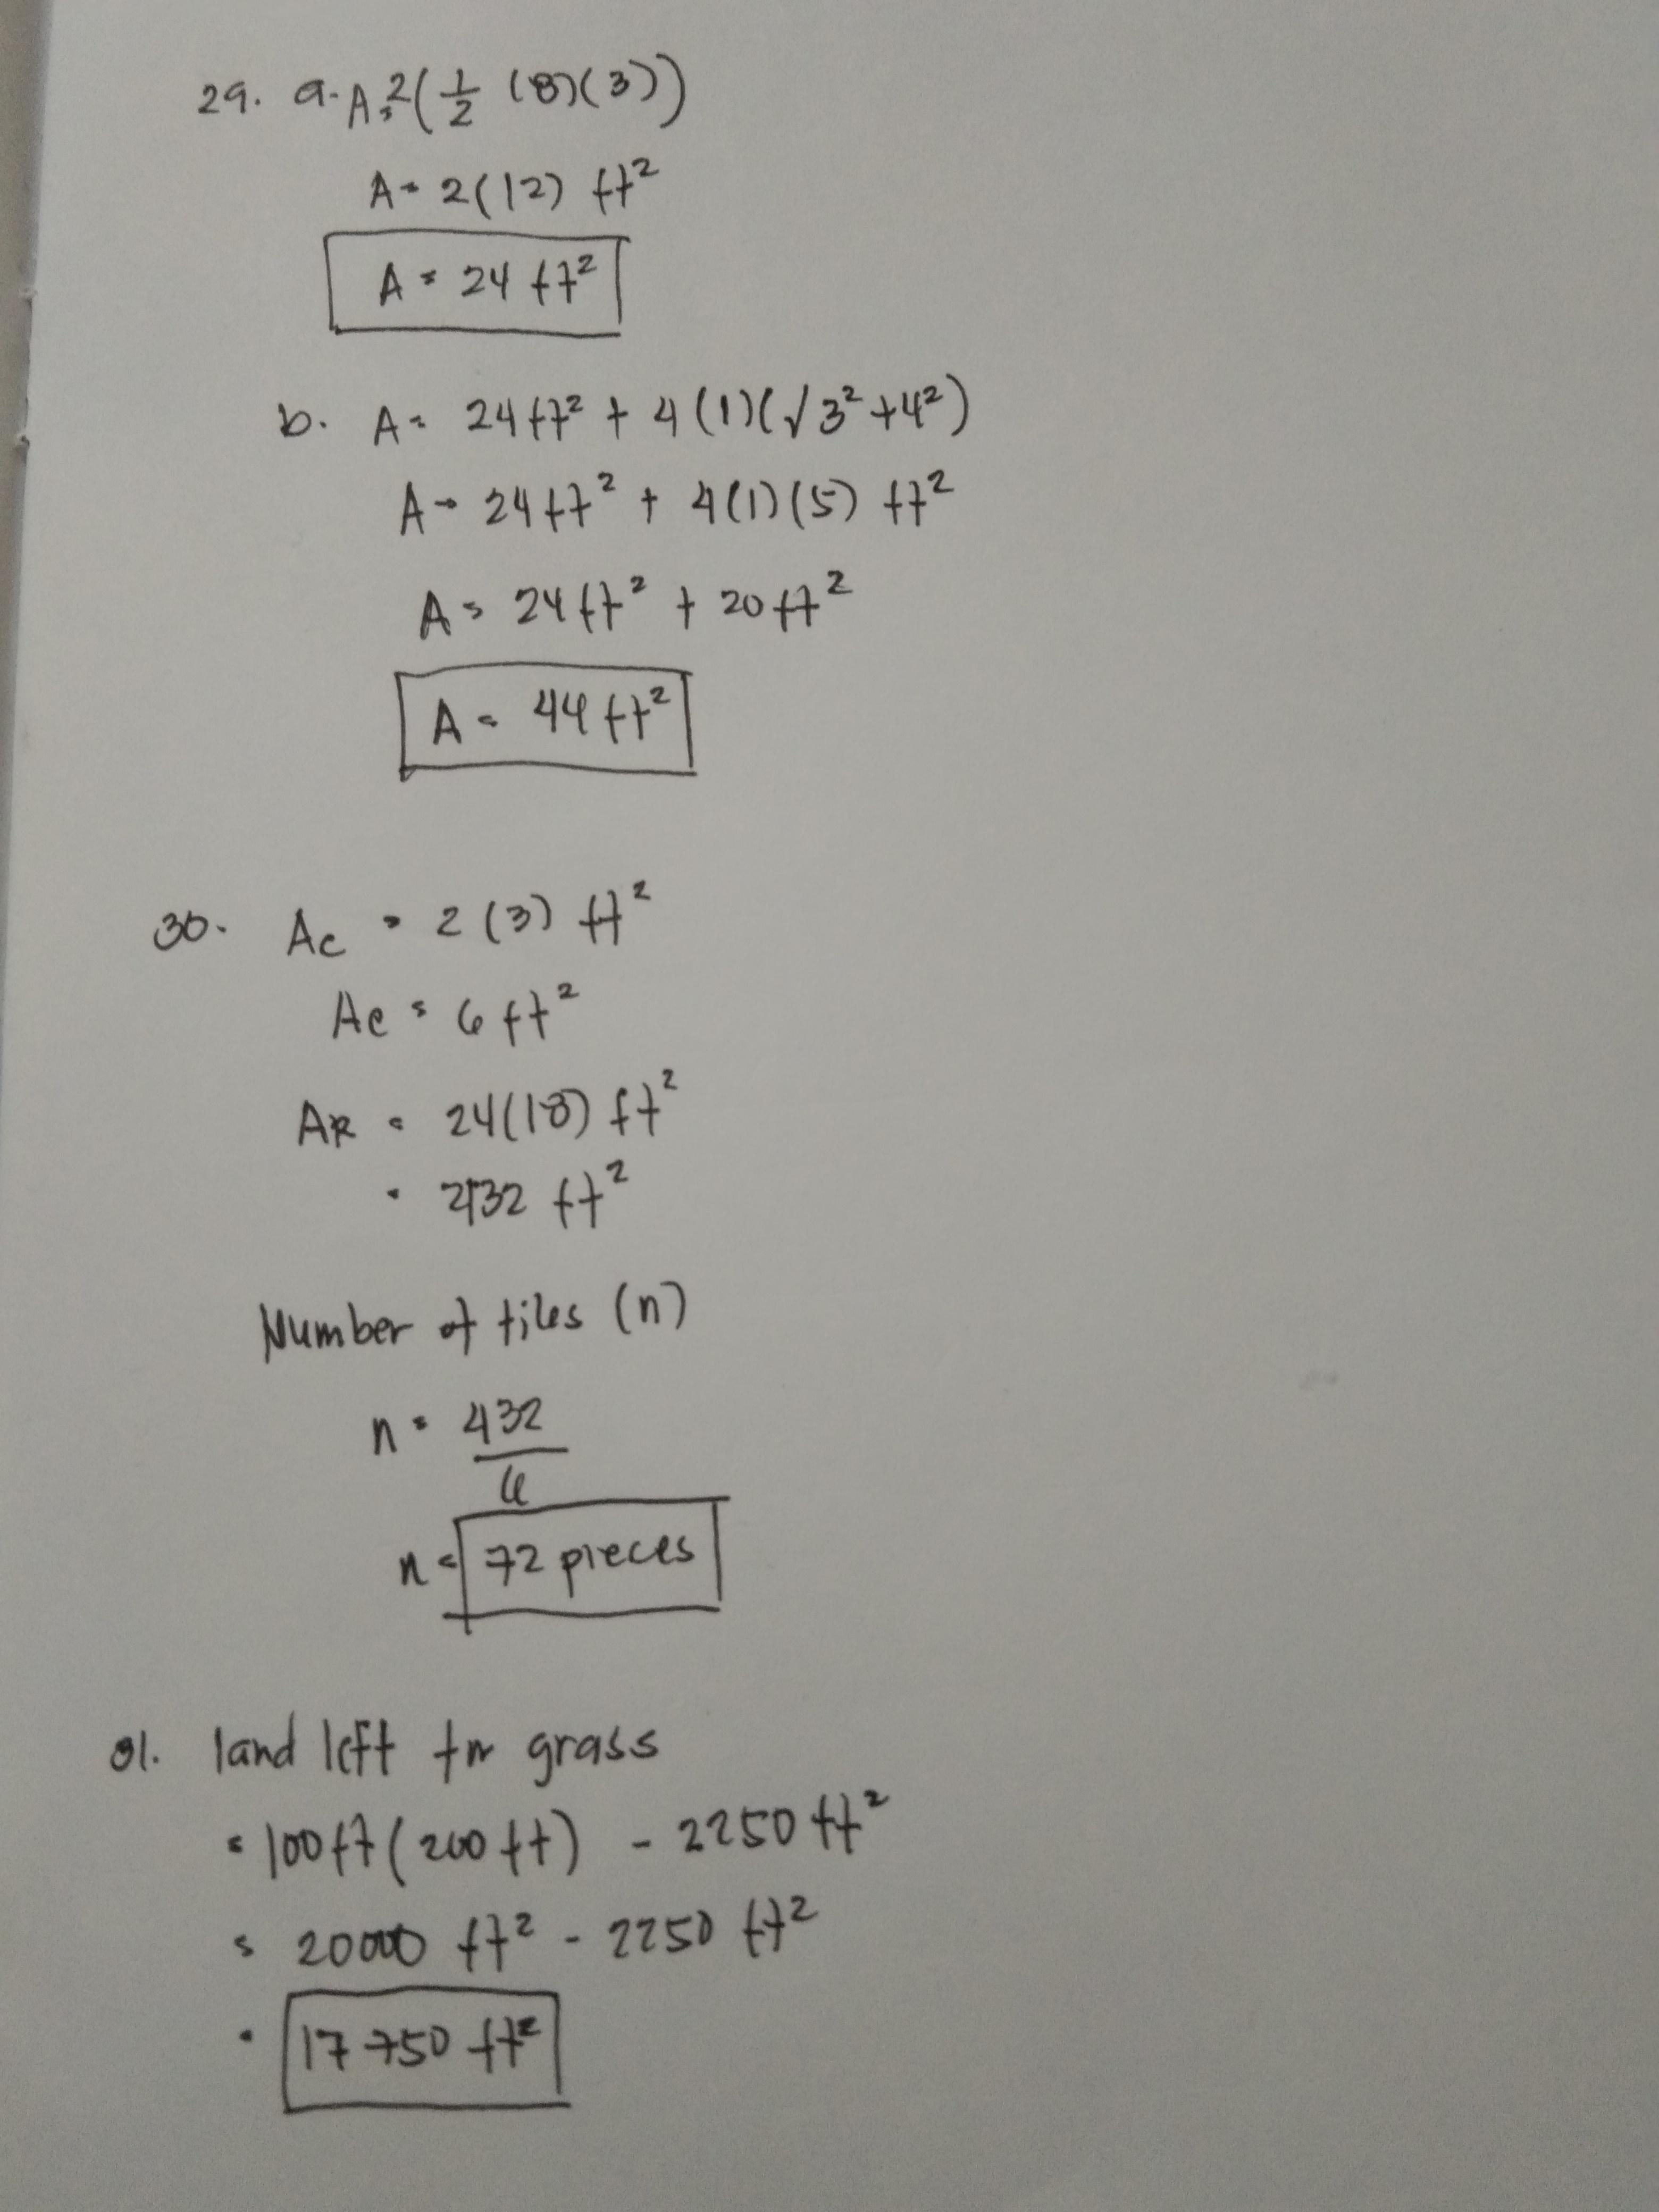 29. a. A = 2(1/2 (8)(3))
A = 2(12) ft²
A = 24 ft²
b. A = 24 ft² + 4(1)(√3²+4²)
A = 24 ft² + 4(1)(5) ft²
A = 24 ft² + 20 ft²
A = 44 ft²
30. Ac = 2(3) ft²
Ac = 6 ft²
AR = 24(18) ft²
= 432 ft²
Number of tiles (n)
n = 432
6
n = 72 pieces
31. land left for grass
= 100 ft (200 ft) - 2250 ft²
= 20000 ft² - 2250 ft²
= 17 750 ft²